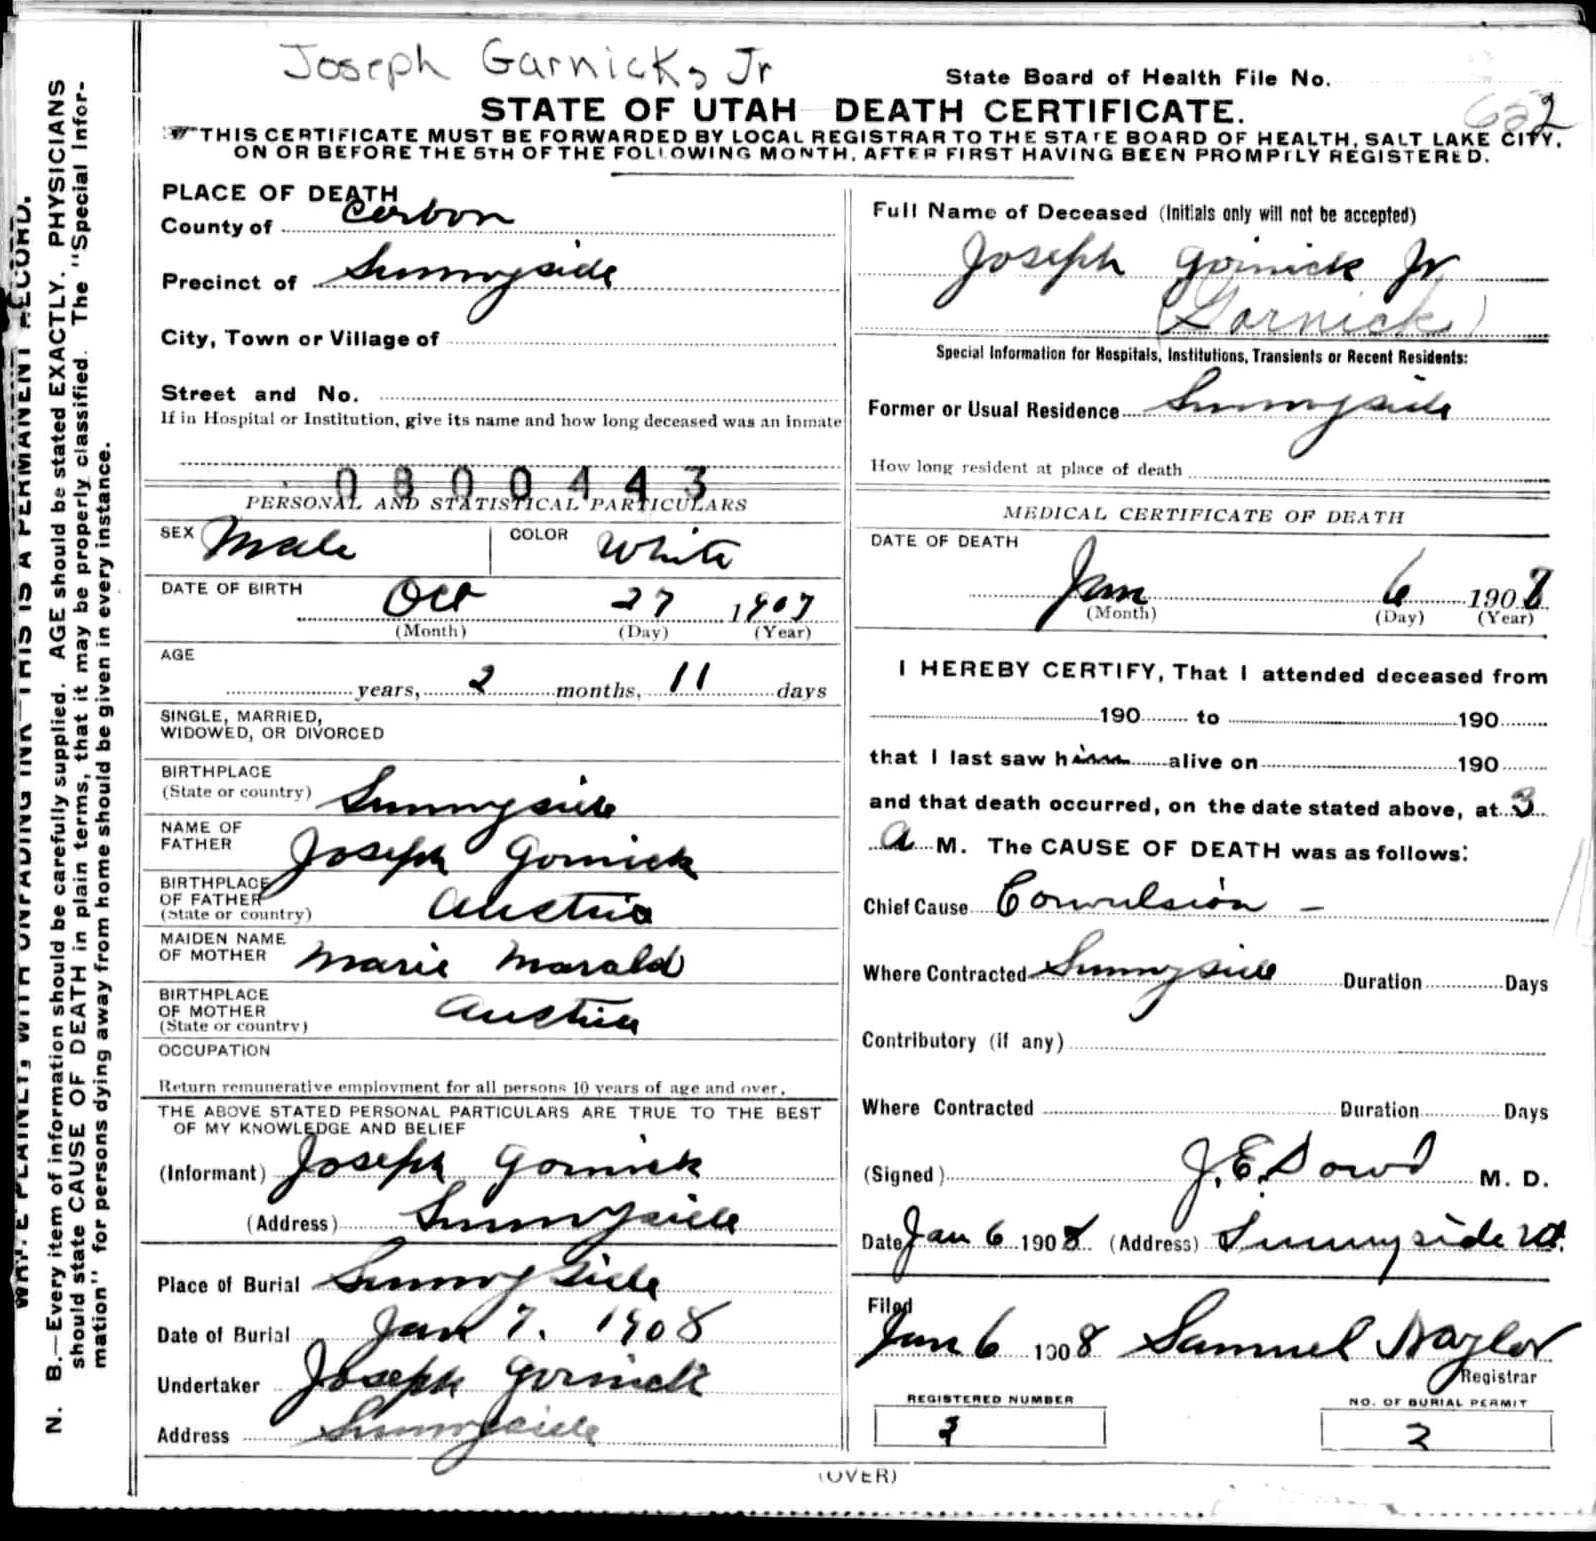 Joseph Garnick, Jr
State Board of Health File No.
2
STATE OF UTAH DEATH CERTIFICATE.
THIS CERTIFICATE MUST BE FORWARDED BY LOCAL REGISTRAR TO THE STATE BOARD OF HEALTH, SALT LAKE CITY,
ON OR BEFORE THE 5TH OF THE FOLLOWING MONTH, AFTER FIRST HAVING BEEN PROMPTLY REGISTERED.
WRITE PLAINLY, WITH UNFADING INK—THIS IS A PERMANENT RECORD.
N. B.—Every item of information should be carefully supplied. AGE should be stated EXACTLY. PHYSICIANS
should state CAUSE OF DEATH in plain terms, that it may be properly classified. The "Special Infor-
mation" for persons dying away from home should be given in every instance.
PLACE OF DEATH
County of Carbon
Precinct of Sunnyside
City, Town or Village of
Street and No.
If in Hospital or Institution, give its name and how long deceased was an inmate
0800443
PERSONAL AND STATISTICAL PARTICULARS
SEX Male COLOR White
DATE OF BIRTH Oct 27 1907
(Month) (Day) (Year)
AGE
years, 2 months, 11 days
SINGLE, MARRIED,
WIDOWED, OR DIVORCED
BIRTHPLACE
(State or country) Sunnyside
NAME OF
FATHER Joseph Gornick
BIRTHPLACE
OF FATHER
(State or country) Austria
MAIDEN NAME
OF MOTHER Marie Marald
BIRTHPLACE
OF MOTHER
(State or country) Austria
OCCUPATION
Return remunerative employment for all persons 10 years of age and over.
THE ABOVE STATED PERSONAL PARTICULARS ARE TRUE TO THE BEST
OF MY KNOWLEDGE AND BELIEF
(Informant) Joseph Gornick
(Address) Sunnyside
Place of Burial Sunnyside
Date of Burial Jan 7. 1908
Undertaker Joseph Gornick
Address Sunnyside
Full Name of Deceased (Initials only will not be accepted)
Joseph Gornick Jr
(Gornick)
Special Information for Hospitals, Institutions, Transients or Recent Residents:
Former or Usual Residence Sunnyside
How long resident at place of death
MEDICAL CERTIFICATE OF DEATH
DATE OF DEATH
Jan 6 1908
(Month) (Day) (Year)
I HEREBY CERTIFY, That I attended deceased from
190 to 190
that I last saw him alive on 190
and that death occurred, on the date stated above, at 3
a M. The CAUSE OF DEATH was as follows:
Chief Cause Convulsion –
Where Contracted Sunnyside Duration Days
Contributory (if any)
Where Contracted Duration Days
(Signed) J. E. Dowd M. D.
Date Jan 6 1908 (Address) Sunnyside Ut.
Filed
Jan 6 1908 Samuel Naylor
Registrar
REGISTERED NUMBER
NO. OF BURIAL PERMIT
2
(OVER)